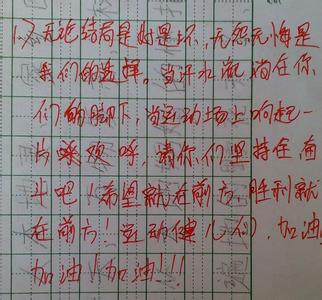 17 无论结局是好是坏，无怨无悔是
我们的选择。当汗水流淌在你
们的脚下，当运动场上响起一
片欢呼，请你们坚持住奋
斗吧！希望就在前方，胜利就
在前方！运动健儿们，加油！
加油！加油!!!